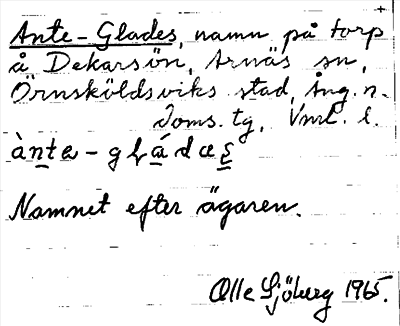 Ante-Glades, namn på torp
å Dekarsön, Arnäs sn,
Örnsköldsviks stad, Ång. n.
Doms. tg, Vnrl. l.
ànta-gládæs
Namnet efter ägaren.
Olle Sjöberg 1965.